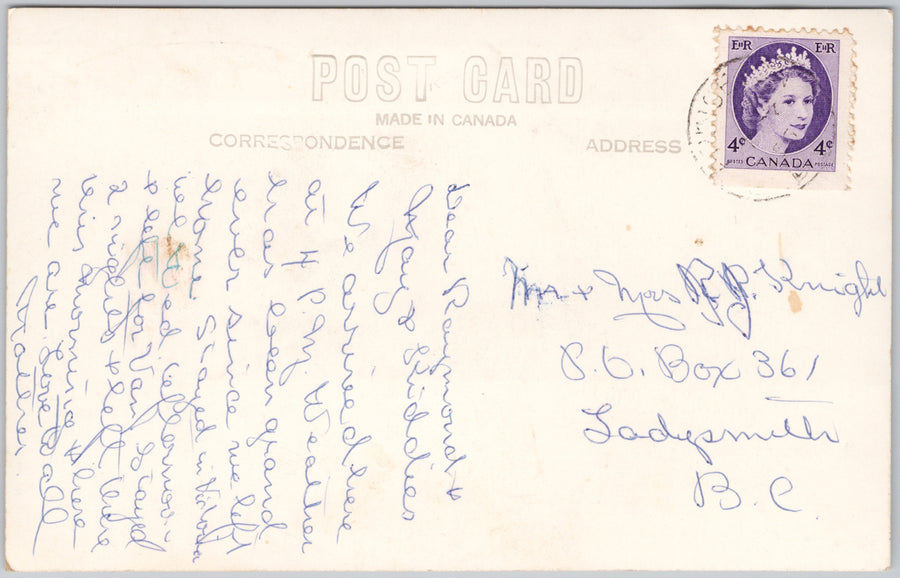 POST CARD
MADE IN CANADA
CORRESPONDENCE
ADDRESS
EIIR EIIR
4¢ CANADA 4¢
POSTES POSTAGE
Dear Raymond &
Mary & Kiddies
We arrived here
at 4 P.M. Weather
has been grand
ever since we left
home. Stayed in Victoria
Wed afternoon
& left for Van. Stayed
2 nights & left there
this morning & here
we are. Love to all
Mother
Mr & Mrs R.P. Knight
P.O. Box 361
Ladysmith
B.C.